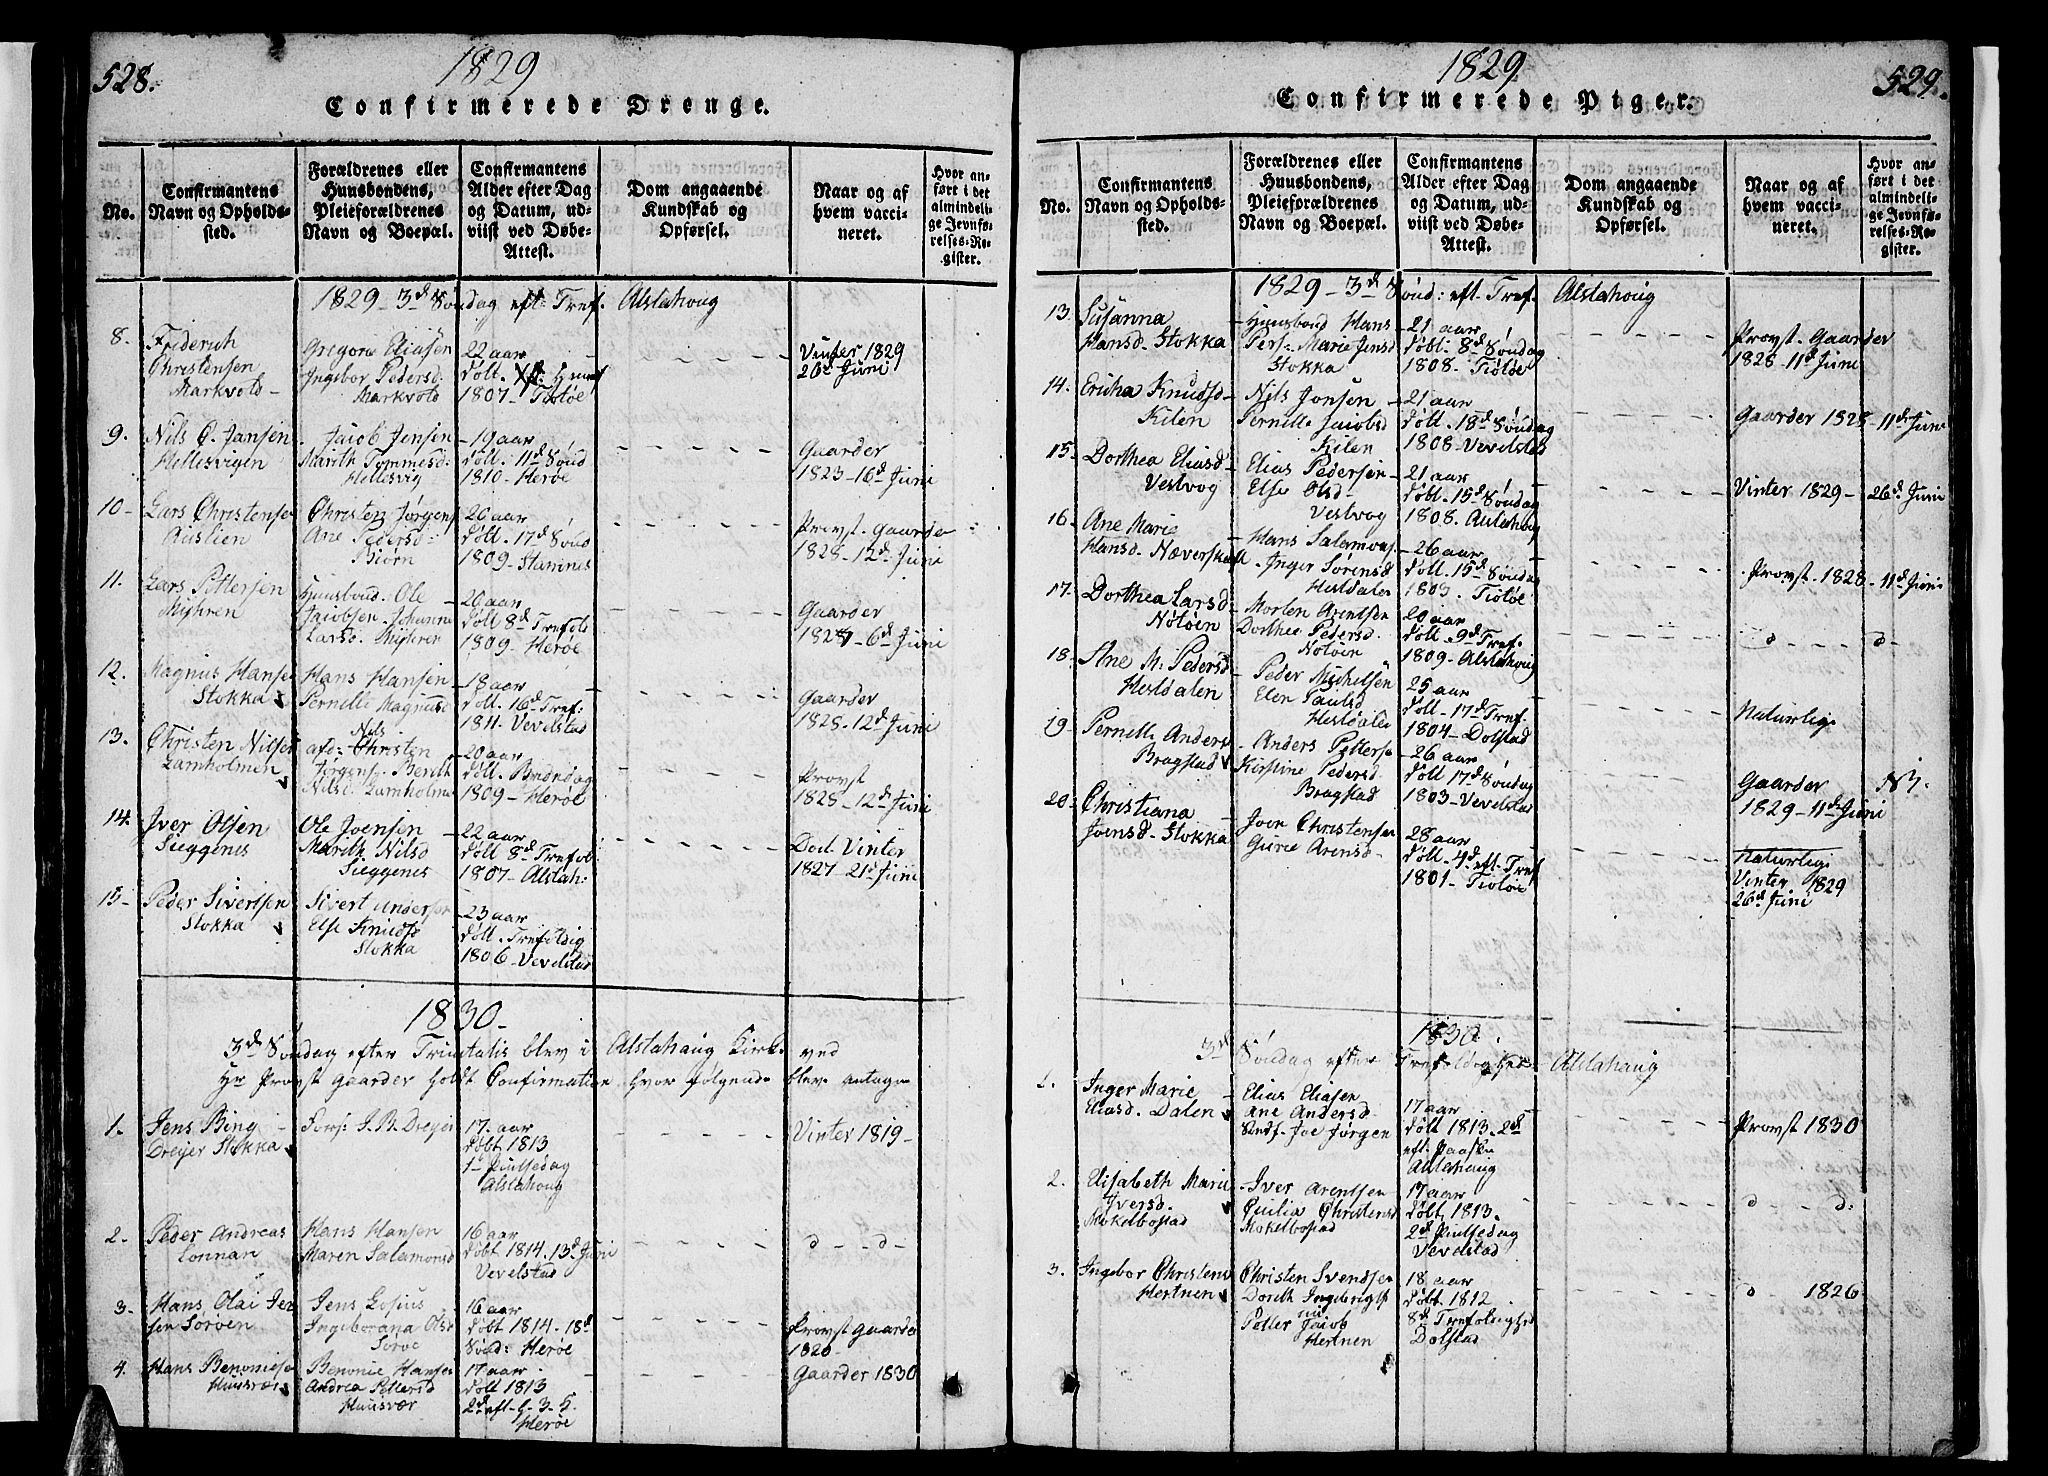 528.
1829
Confirmerede Drenge.
No.
Confirmantens
Navn og Opholds-
sted.
Forældrenes eller
Huusbondens,
Pleieforældrenes
Navn og Boepæl.
Confirmantens
Alder efter Dag
og Datum, ud-
viist ved Døbe-
Attest.
Dom angaaende
Kundskab og
Opførsel.
Naar og af
hvem vacci-
neret.
Hvor an-
ført i det
almindeli-
ge Jevnfø-
relses-Re-
gister.
1829 - 3d Søndag eft: Tref. Alstahoug
8.
Friderich
Christensen
Markvold
Gregors Eliasen
Ingebor Pedersd.
Markvold
22 aar
døbt.
1807 - Tiøtøe
Vinter 1829
26d Juni
9.
Nils C. Jansen
Hellesvigen
Jacob Jensen
Marith Tommesd:
Hellesvig
19 aar
døbt. 11d Sønd
1810 - Herøe
Gaarder
1823 - 16d Juni
10 -
Lars Christense
Auslien
Christen Jørgens
Ane Pedersd -
Biørn
20 aar
døbt. 17d Sønd
1809 - Stamnes
Provst Gaarde
1828 - 12d Juni
11.
Lars Pettersen
Myhren
Huusbond: Ole
Jacobsen. Johanne
Larsd. Myhren
20 aar
døbt 8d Trefold
1809 - Herøe
Gaarder
1827 - 6d Juni
12.
Magnus Hanse
Stokka
Hans Hansen
Pernelle Magnusd
18 aar
døbt. 16d Tref.
1811. Vevelstad
Gaarder
1828 - 12d Juni
13.
Christen Nilsen
Lamholmen
Nils
afd: Christen
Jørgens. Berith
Nilsd. Lamholme
20 aar
døbt.
1809 - Herøe
Provst
1828 - 12d Juni
14.
Iver Olsen
Sieggenes
Ole Joensen
Marith Nilsd
Sieggenes
22 aar
døbt 8d Trefol
1807 - Alstah:
Vinter
1827 - 21d Juni
15 -
Peder Sivertsen
Stokka
Sivert
Else Knudsd
Stokka
23 aar
døbt. Trefoldig
1806 - Vevelstad
1830 -
3d Søndag efter Trinitatis blev i Alstahaug Kirke ved
Hr Provst Gaarder holdt Confirmation, hvor følgende blev antagn
1.
Jens Bing
Dreyer Stokka
Sors: J. B. Dreyer
17. aar
døbt 1813
1te Pintsedag
Alstahoug
Vinter 1819 -
2.
Peder Andreas
Lonnan
Hans Hansen
Maren Salamonsd
16 aar
døbt 1814. 13d Juni
Vevelstad
d - - d -
3 -
Hans Olai Jen
sen Sørøen
Jens Losius
Ingeborana Olsd
Sørøe
16 aar
døbt 1814 - 18d
Sønd: Herøe
Provst Gaarde
1820 -
4.
Hans Benonise
Huusvær
Benonie Hansen
Andrea Pettersd
Huusvær
17 aar.
døbt 1813
2d eft - S - 3 - 5.
Herøe
Gaarder 1830
1829.
529.
Confirmerede Piger.
No.
Confirmantens
Navn og Opholds-
sted.
Forældrenes eller
Huusbondens,
Pleieforældrenes
Navn og Boepæl.
Confirmantens
Alder efter Dag
og Datum, ud-
viist ved Døbe-
Attest.
Dom angaaende
Kundskab og
Opførsel.
Naar og af
hvem vacci-
neret.
Hvor an-
ført i det
almindeli-
ge Jevnfø-
relses-Re-
gister.
1829 - 3d Sønd: eft. Tref. Alstahoug
13.
Susanna
Hansd. Stokka
Huusbond Hans
Pers: Marie Jensd
Stokka
21 aar
døbt. 8d Søndag
1808. Tiøtøe
Provst. Gaarder
1828 - 11d Juni
14.
Ericha Knudsd
Kilen
Nils Jonsen
Pernelle Jacobsd
Kilen
21 aar
døbt. 18d Søndag
1808 - Vevelstad
Gaarder 1828 - 11d Juni
15.
Dorthea Eliasd
Vestvog
Elias Pedersen
Else Olsd
Vestvog
21 aar
døbt. 15d Søndag
1808. Alstahoug
Vinter 1829 - 26d Juni
16.
Ane Marie
Hansd. Næverskall
Hans Salamons
Inger Sørensd
Hestdalen
26 aar
døbt. 15d Søndag
1803. Tiøtøe
Provst. 1828 - 11d Juni
17.
Dorthea Larsd
Nøtøen
Morten Arentsen
Dorthea Pedersd.
Nøtøen
20 aar
døbt. 9d Tref.
1809 - Alstahoug
d - - d -
18 -
Ane M: Pedersd
Hestdalen
Peder Michelsen
Elen Paulsd
Hestdalen
25 aar
døbt - 17d Tref.
1804 - Dolstad
Naturlige
19 -
Pernelle Anders
Bragstad
Anders Petterse
Kirstine Pedersd
Bragstad
26 aar
døbt 17d Søndag
1803 - Vevelstad
Gaarder
1829 - 11d Juni
20 -
Christiana
Joensd - Stokka
Joen Christensen
Gurie Arensd -
28 aar
døbt. 4d eft. Tref
1801 - Tiøtøe
Naturlige
Vinter 1829
26d Juni
1830.
3d Søndag efter Trefoldighed Alstahaug
1.
Inger Marie
Eliasd. Dalen
Elias Eliasen
Ane Andersd
Joe Jørgen
17 aar
døbt 1813 - 2d
eft. Paaske
Alstahaug
Provst 1830
2.
Elisabeth Marie
Iversd.
Mokelbostad
Iver Arentsen
Cicilia Christensd
Mokelbostad
17 aar
døbt 1813.
2d Pintsedag
Vevelstad
d - - d.
3.
Ingebor Christens
Hertnen
Christen Svendsen
Dorith
Petter Jacob
Hertnen
18 aar
døbt 1812
8d Trefoldighed
Dolstad
d - 1826